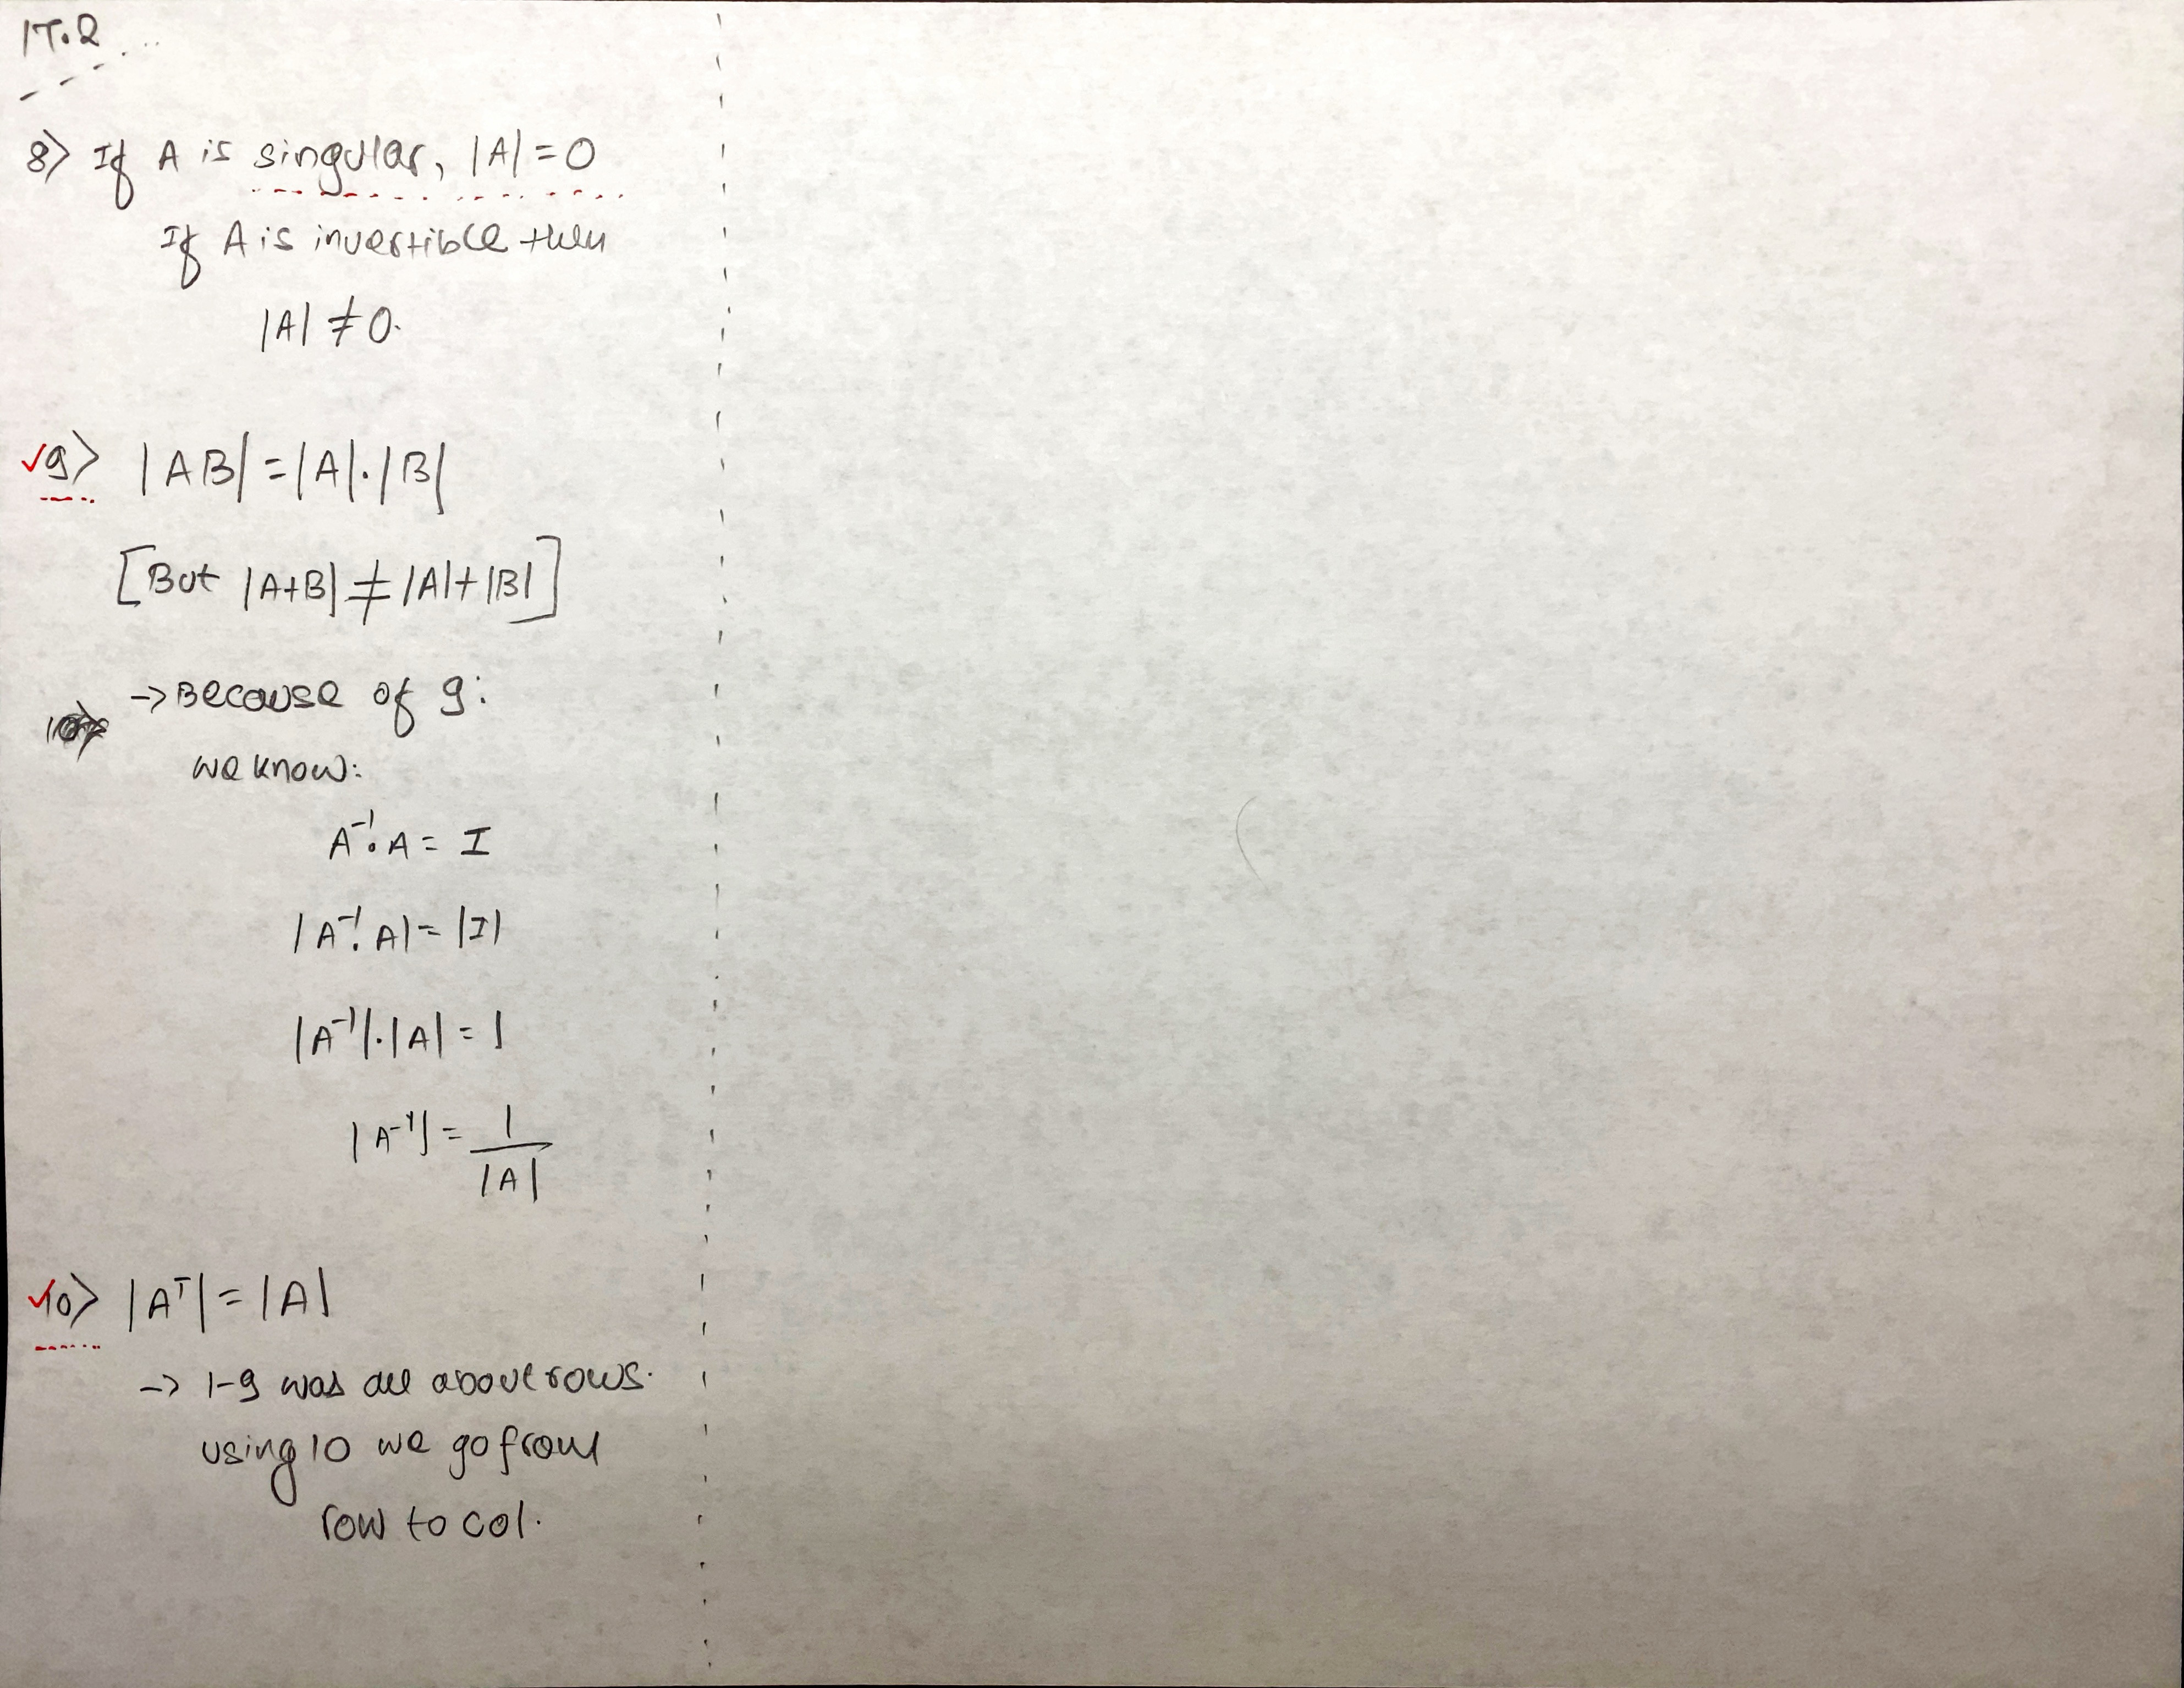 17.2
8> If A is singular, |A| = 0
If A is invertible then
|A| ≠ 0.
✓9> |AB| = |A|.|B|
[But |A+B| ≠ |A|+|B|]
-> Because of 9:
we know:
A⁻¹. A = I
|A⁻¹. A| = |I|
|A⁻¹|.|A| = 1
|A⁻¹| = 1/|A|
✓10> |Aᵀ| = |A|
-> 1-9 was all about rows.
using 10 we go from
row to col.